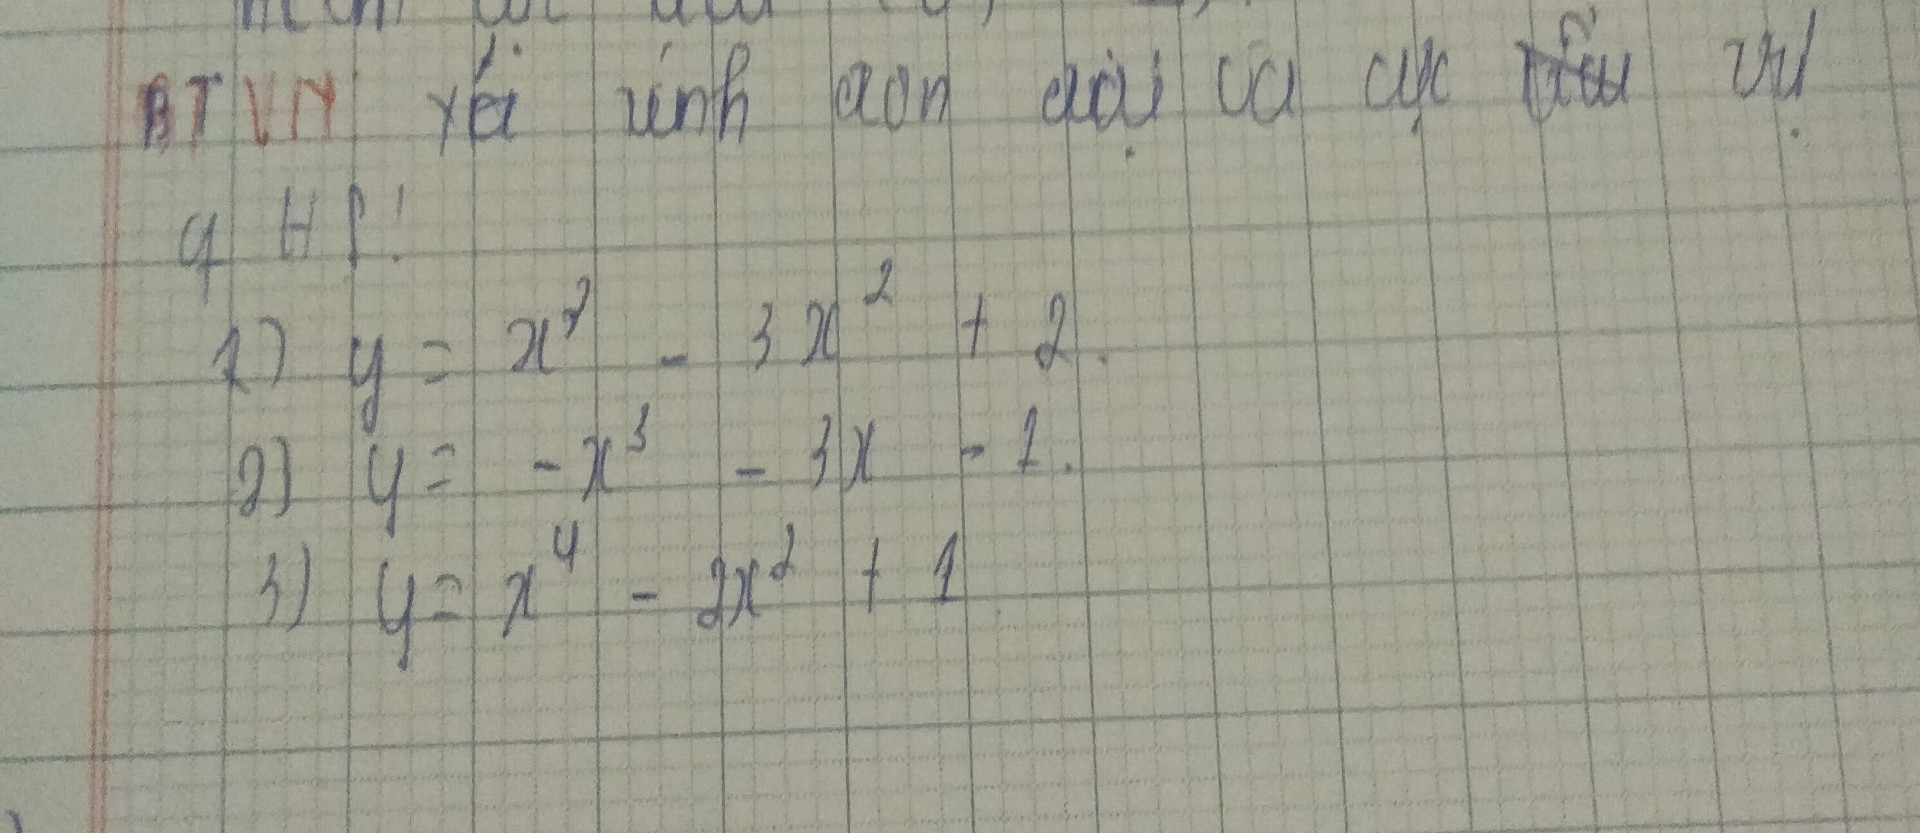 BTVN xét tính đơn điệu và cực tiểu trị
của HS:
1) y = x³ - 3x² + 2.
2) y = -x³ - 3x - 1.
3) y = x⁴ - 2x² + 1